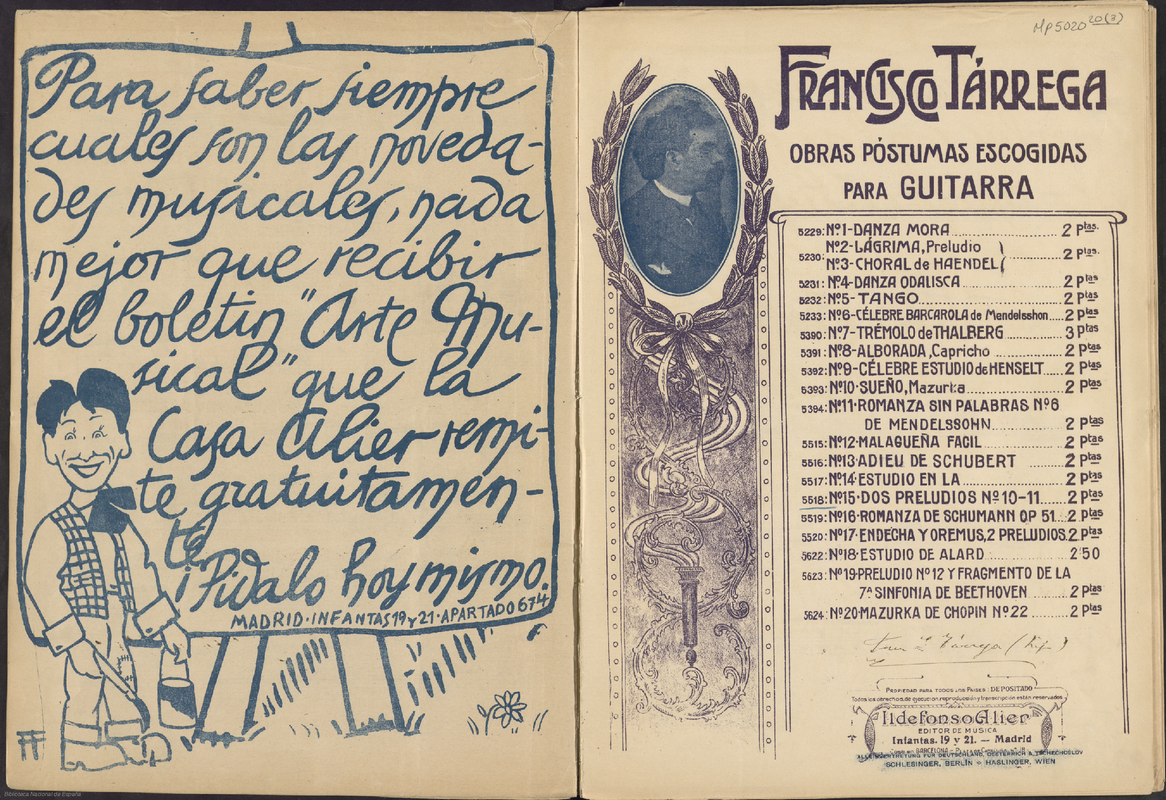 Para saber siempre
cuales son las noveda-
des musicales, nada
mejor que recibir
el boletin "Arte Mu-
sical" que la
Casa Alier remi-
te gratuitamen-
te.
¡Pidalo hoy mismo.
MADRID·INFANTAS 19 y 21·APARTADO 674
Biblioteca Nacional de España
MP5020 20(3)
FRANCISCO TÁRREGA
OBRAS PÓSTUMAS ESCOGIDAS
PARA GUITARRA
5229: Nº1-DANZA MORA 2 Ptas.
5230: Nº2-LÁGRIMA, Preludio
Nº3-CHORAL de HAENDEL 2 Ptas.
5231: Nº4-DANZA ODALISCA 2 Ptas
5232: Nº5-TANGO 2 Ptas
5233: Nº6-CÉLEBRE BARCAROLA de Mendelsshon 2 Ptas
5390: Nº7-TRÉMOLO de THALBERG 3 Ptas
5391: Nº8-ALBORADA, Capricho 2 Ptas
5392: Nº9-CÉLEBRE ESTUDIO de HENSELT 2 Ptas
5393: Nº10-SUEÑO, Mazurka 2 Ptas
5394: Nº11-ROMANZA SIN PALABRAS Nº6
DE MENDELSSOHN 2 Ptas
5515: Nº12-MALAGUEÑA FACIL 2 Ptas
5516: Nº13 ADIEU DE SCHUBERT 2 Ptas
5517: Nº14 ESTUDIO EN LA 2 Ptas
5518: Nº15-DOS PRELUDIOS Nº10-11 2 Ptas
5519: Nº16-ROMANZA DE SCHUMANN OP 51 2 Ptas
5520: Nº17-ENDECHA Y OREMUS, 2 PRELUDIOS. 2 Ptas
5622: Nº18-ESTUDIO DE ALARD 2'50
5623: Nº19-PRELUDIO Nº12 Y FRAGMENTO DE LA
7ª SINFONIA DE BEETHOVEN 2 Ptas
5624: Nº20-MAZURKA DE CHOPIN Nº22 2 Ptas
Tárrega
PROPIEDAD PARA TODOS LOS PAISES: DEPOSITADO
Todos los derechos de ejecucion, reproducción y transcripción están reservados
Ildefonso Alier
EDITOR DE MUSICA
Infantas, 19 y 21. — Madrid
ALLEINVERTRETUNG FÜR DEUTSCHLAND, OESTERREICH & TSCHECHOSLOV
SCHLESINGER, BERLIN ○ HASLINGER, WIEN